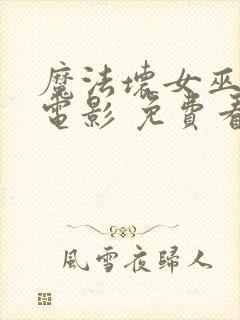 魔法壞女巫
電影 免費看
風雪夜歸人